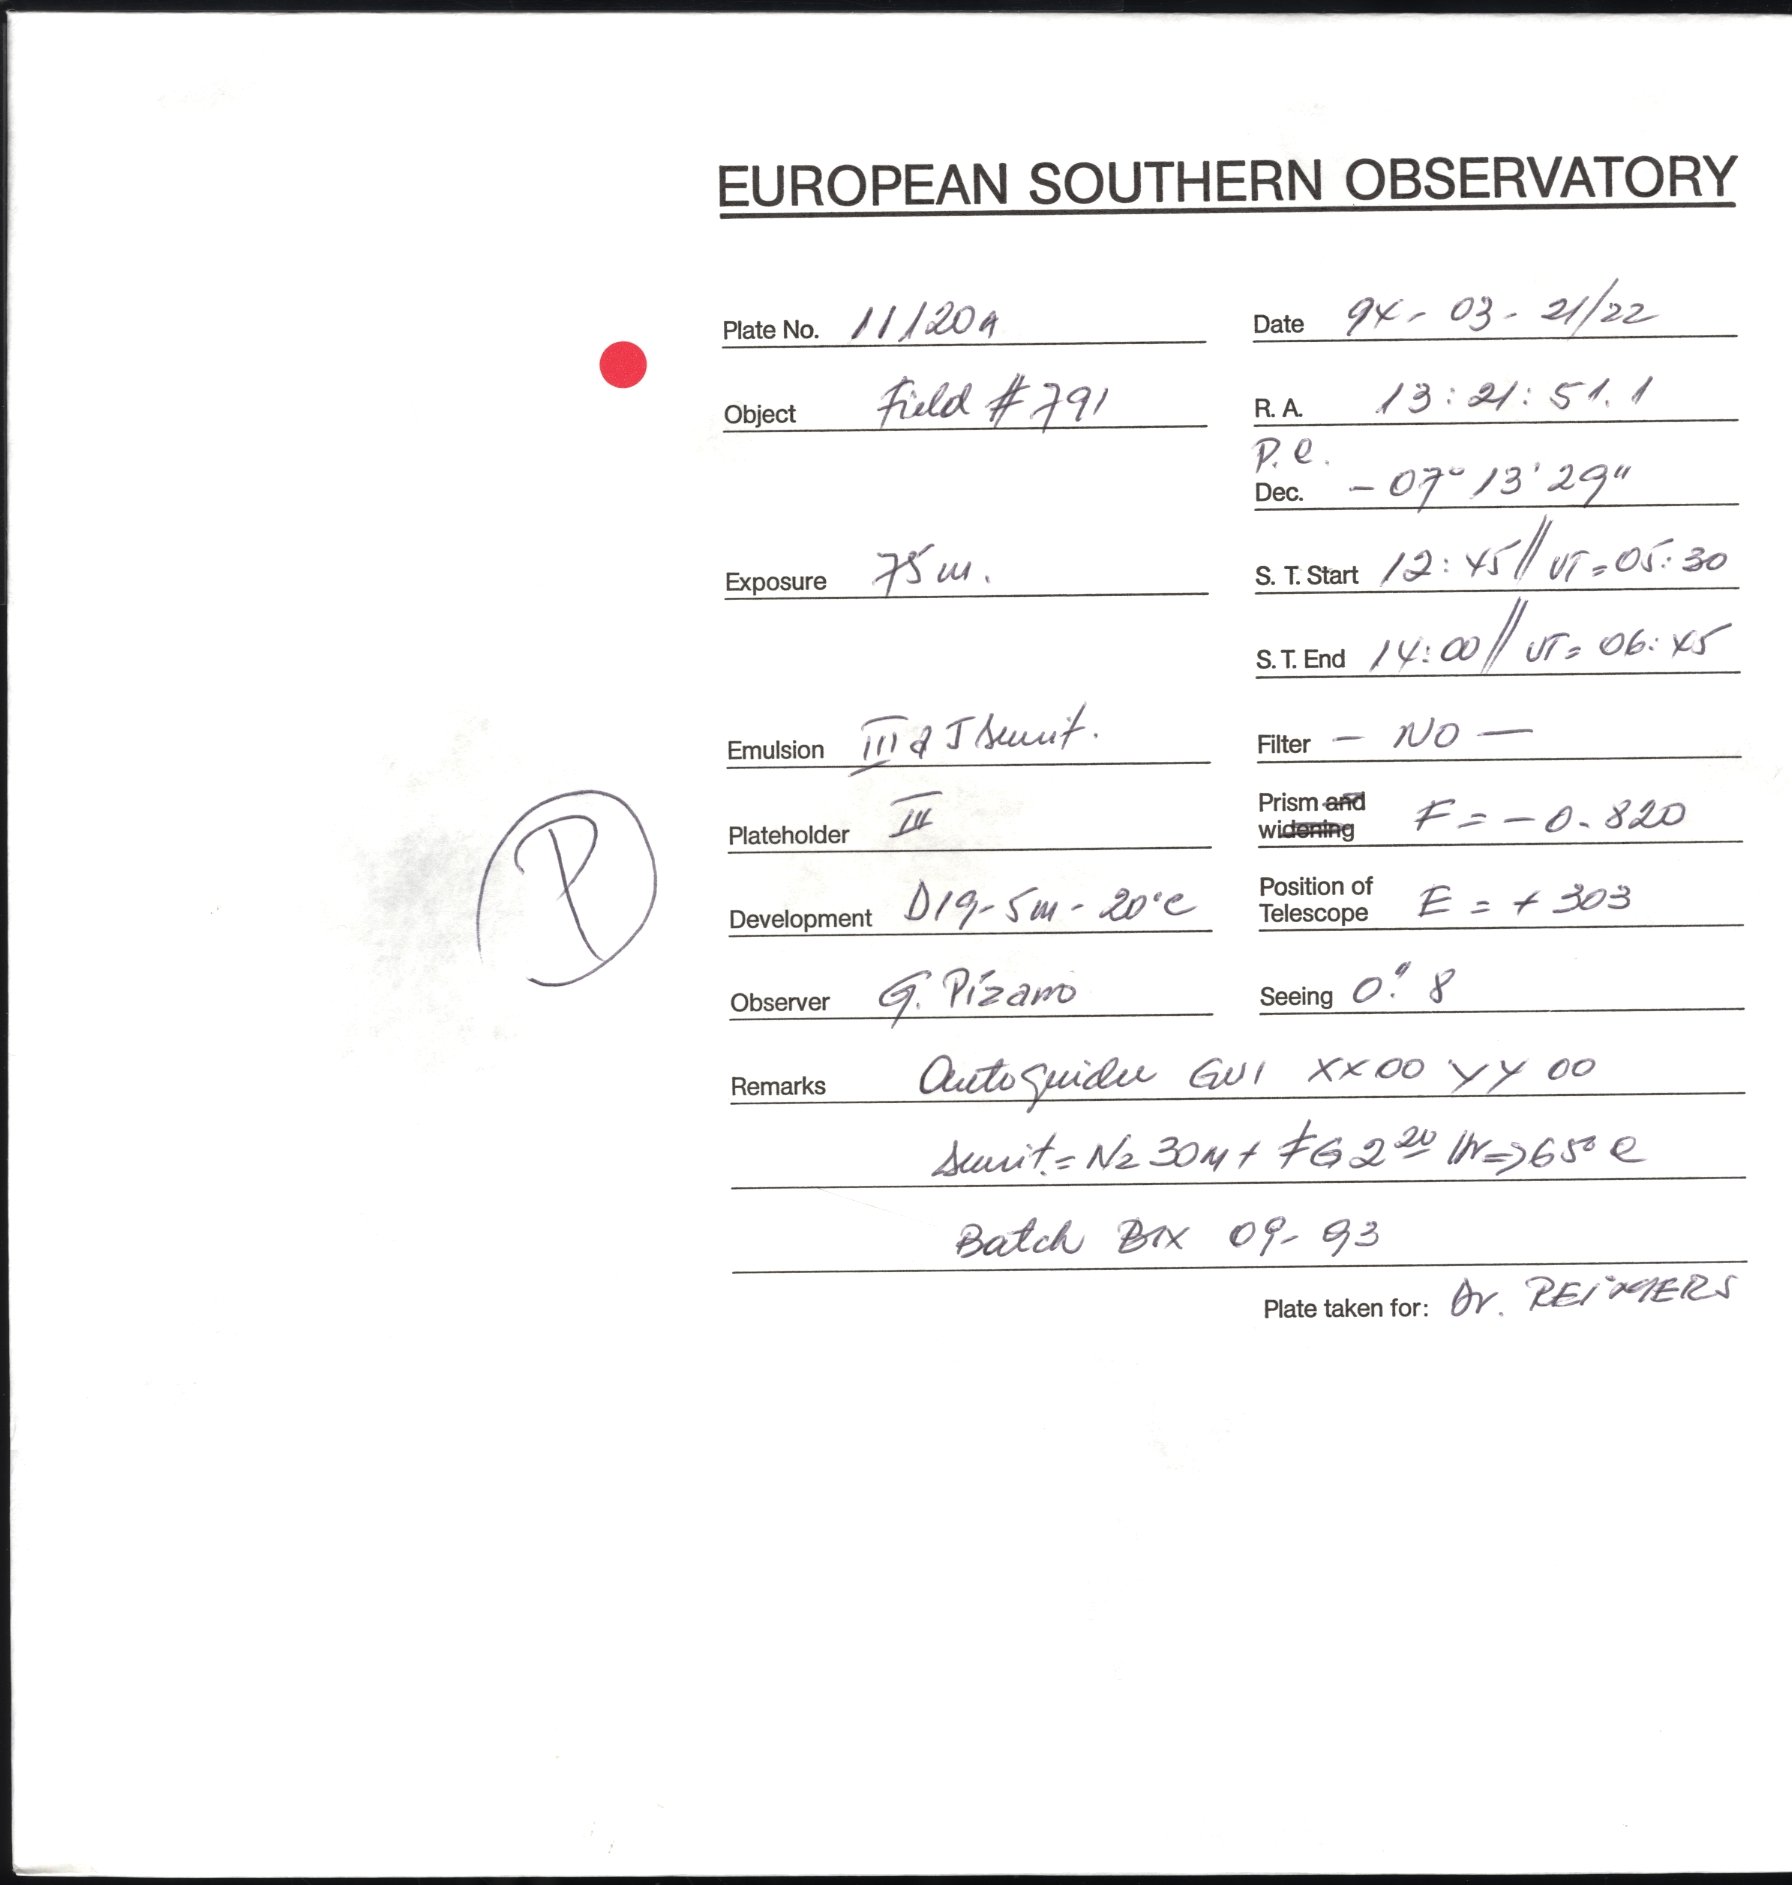 EUROPEAN SOUTHERN OBSERVATORY
Plate No. 11120A Date 94-03-21/22
Object Field #791 R. A. 13:21:51.1
P.C.
Dec. -07° 13' 29"
Exposure 75m. S. T. Start 12:45 // UT=05:30
S. T. End 14:00 // UT=06:45
Emulsion III a J sensit. Filter - NO -
Plateholder III Prism and widening F = -0.820
Development D19-5m-20°C Position of Telescope E = +303
Observer G. Pizarro Seeing 0."8
Remarks Autoguider GW1 XX00 YY00
sensit.= N2 30m + FG 2 20 Hr=>65°C
Batch BIX 09-93
Plate taken for: Dr. REIMERS
P